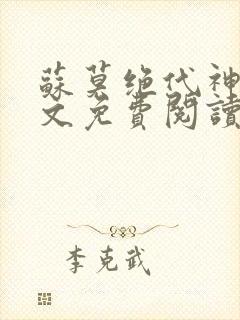 蘇莫絕代神
文免費閱讀
李克武